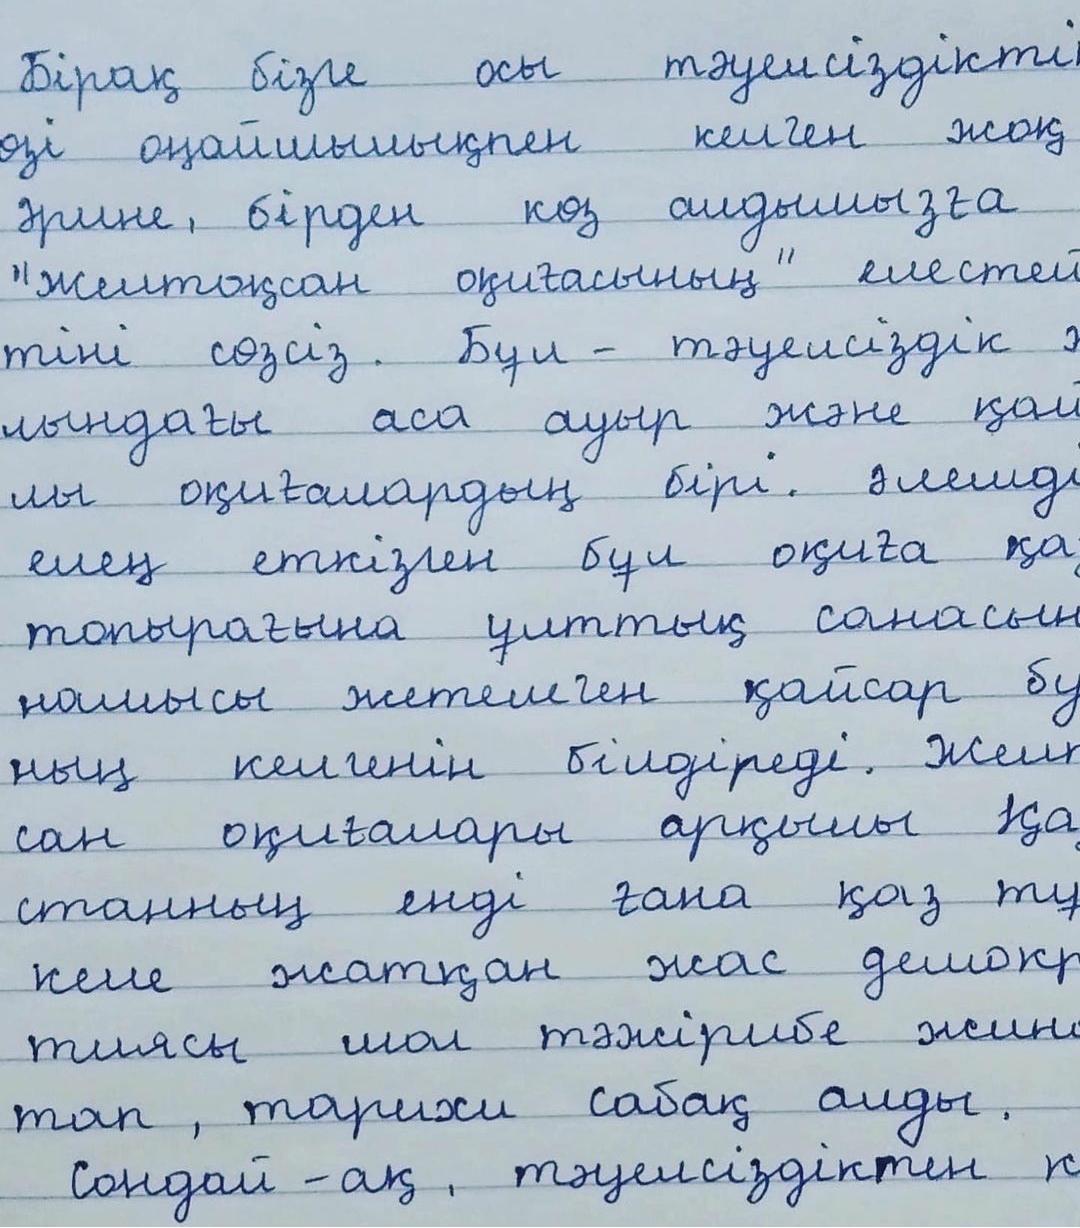 Бірақ бізге осы тәуелсіздікті
өзі оңайшылықпен келген жоқ
Әрине, бірден көз алдымызға
"Желтоқсан оқиғасының" елестей
тіні сөзсіз. Бұл - тәуелсіздік
лындағы аса ауыр және қай
лы оқиғалардың бірі. Әлемді
елең еткізген бұл оқиға қаз
топырағына ұлттық санасын
намысы жетелеген қайсар бу
ның келгенін білдіреді. Желт
сан оқиғалары арқылы Қаз
станның енді ғана қаз тұ
келе жатқан жас демокр
тиясы мол тәжірибе жина
тап, тарихи сабақ алды.
Сондай-ақ, тәуелсіздіктен к